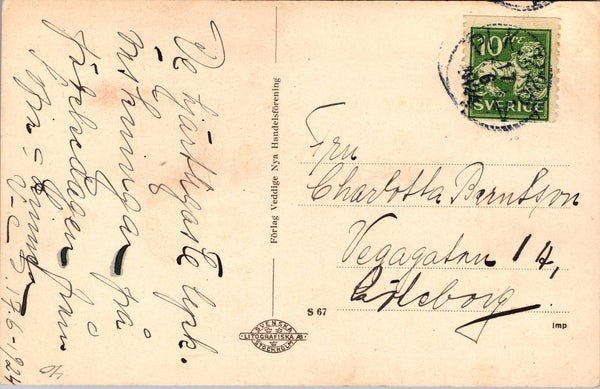 De hjärtligaste lyck-
önskningar på
födelsedagen från
17.6-1924
Förlag Veddige Nya Handelsförening
Fru
Charlotta Berntsson
Vegagatan 14,
Göteborg
S 67
Imp
SVENSKA
LITOGRAFISKA AB
STOCKHOLM
10
SVERIGE